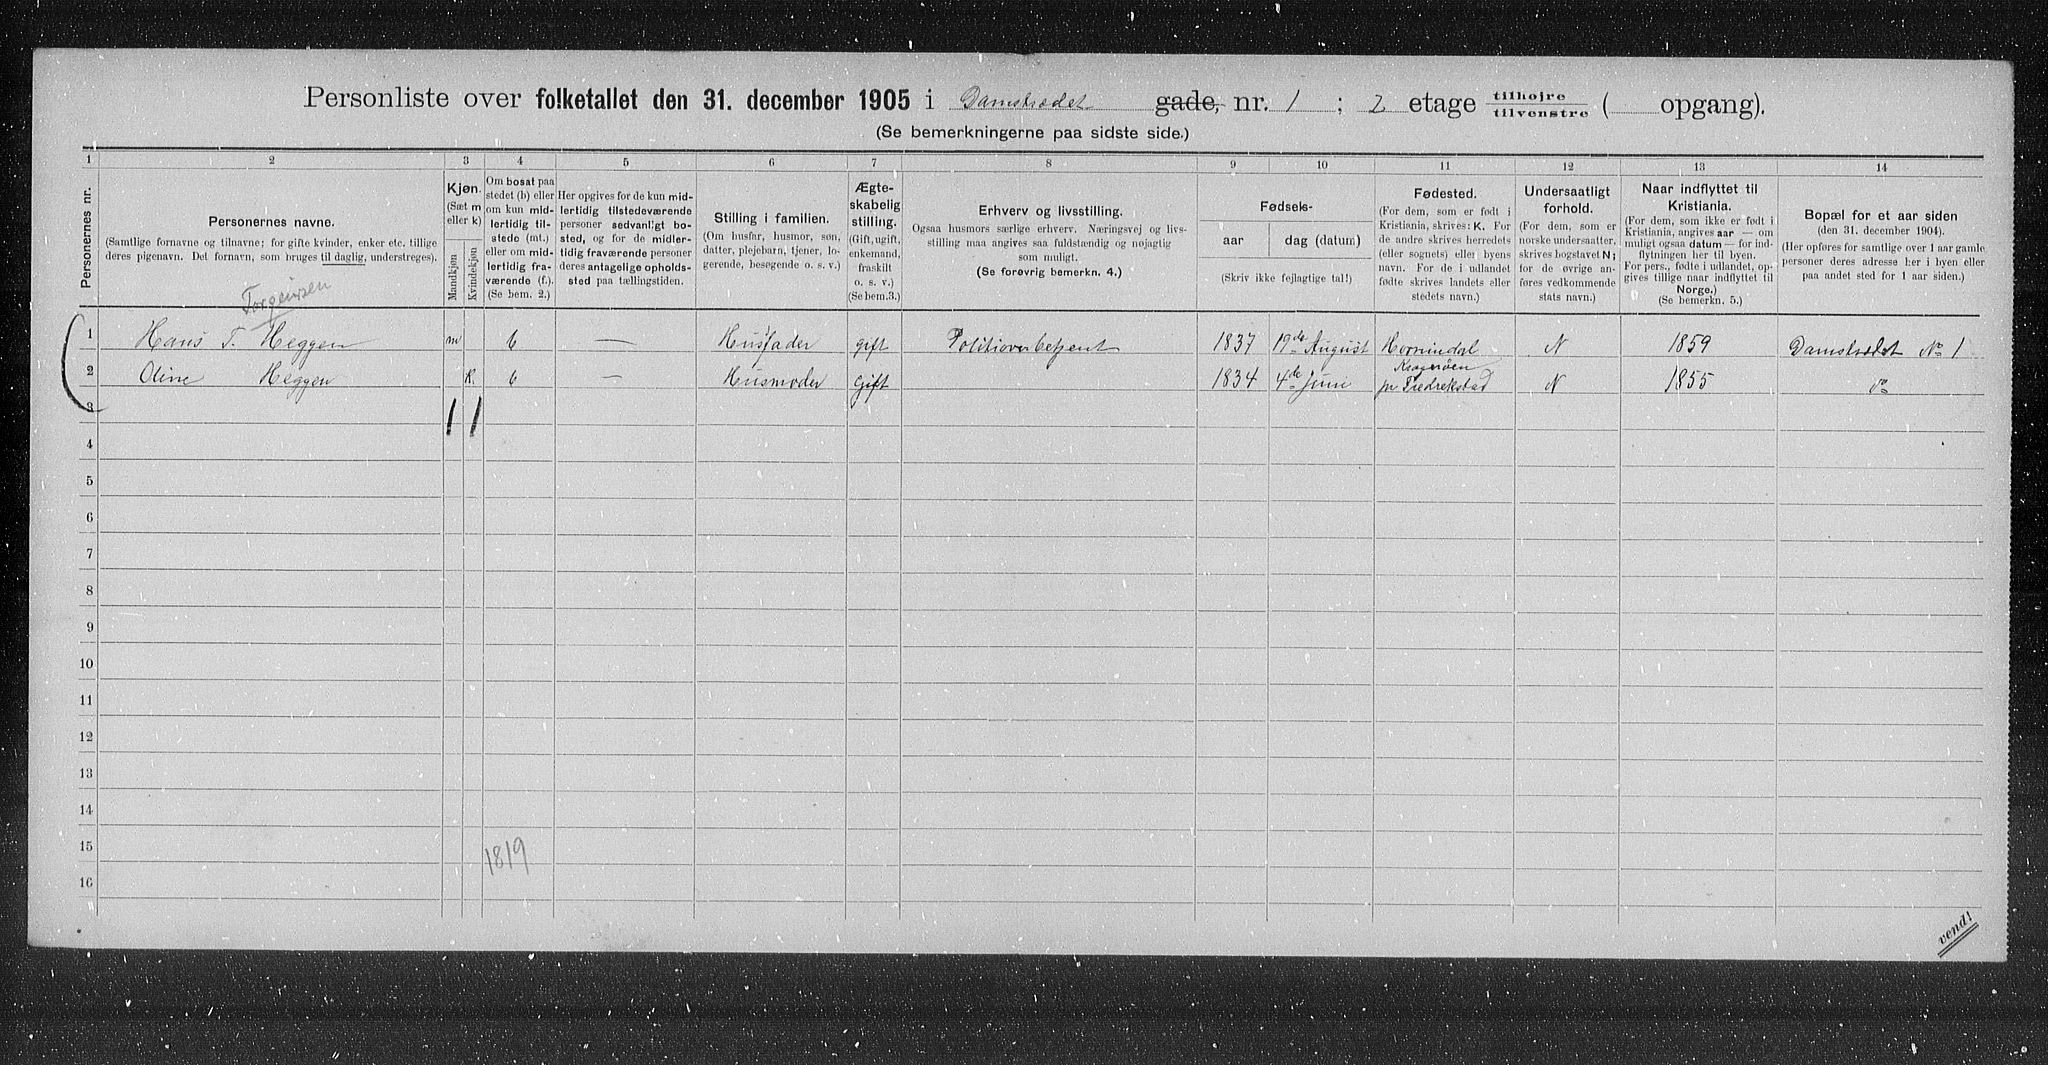 Personliste over folketallet den 31. december 1905 i Damstrædet gade, nr. 1 ; 2 etage tilhøjre tilvenstre ( opgang).
(Se bemerkningerne paa sidste side.)
1 2 3 4 5 6 7 8 9 10 11 12 13 14
Personernes nr.
Personernes navne.
(Samtlige fornavne og tilnavne; for gifte kvinder, enker etc. tillige
deres pigenavn. Det fornavn, som bruges til daglig, understreges).
Kjøn.
(Sæt m
eller k)
Mandkjøn
Kvindekjøn
Om bosat paa
stedet (b) eller
om kun mid-
lertidig til-
stede (mt.)
eller om mid-
lertidig fra-
værende (f.).
(Se bem. 2.)
Her opgives for de kun mid-
lertidig tilstedeværende
personer sedvanligt bo-
sted, og for de midler-
tidig fraværende personer
deres antagelige opholds-
sted paa tællingstiden.
Stilling i familien.
(Om husfar, husmor, søn,
datter, plejebarn, tjener, lo-
gerende, besøgende o. s. v.)
Ægte-
skabelig
stilling.
(Gift, ugift,
enkemand,
fraskilt
o. s. v.)
(Se bem.3.)
Erhverv og livsstilling.
Ogsaa husmors særlige erhverv. Næringsvej og livs-
stilling maa angives saa fuldstændig og nøjagtig
som muligt.
(Se forøvrig bemerkn. 4.)
Fødsels-
aar
dag (datum)
(Skriv ikke fejlagtige tal!)
Fødested.
(For dem, som er født i
Kristiania, skrives: K. For
de andre skrives herredets
(eller sognets) eller byens
navn. For de i udlandet
fødte skrives landets eller
stedets navn.)
Undersaatligt
forhold.
(For dem, som er
norske undersaatter,
skrives bogstavet N;
for de øvrige an-
føres vedkommende
stats navn.)
Naar indflyttet til
Kristiania.
(For dem, som ikke er født i
Kristiania, angives aar — om
muligt ogsaa datum — for ind-
flytningen her til byen.
For pers., fødte i udlandet, op-
gives tillige naar indflyttet til
Norge.)
(Se bemerkn. 5.)
Bopæl for et aar siden
(den 31. december 1904).
(Her opføres for samtlige over 1 aar gamle
personer deres adresse her i byen eller
paa andet sted for 1 aar siden.)
Torgeirsen
1 Hans T. Heggen m b — Husfader gift Politioverbetjent 1837 19de August Hornindal N 1859 Damstrædet No 1
2 Oline Heggen k. b — Husmoder gift 1834 4de Juni Kragerøen pr Fredrekstad N 1855 do
3 1 1
4
5
6
7
8
9
10
11
12
13
14
15 1819
16
vend!